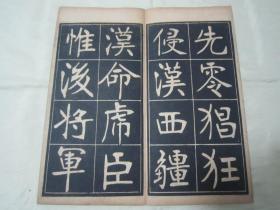 先零猖狂
侵漢西疆
漢命虎臣
惟後將軍